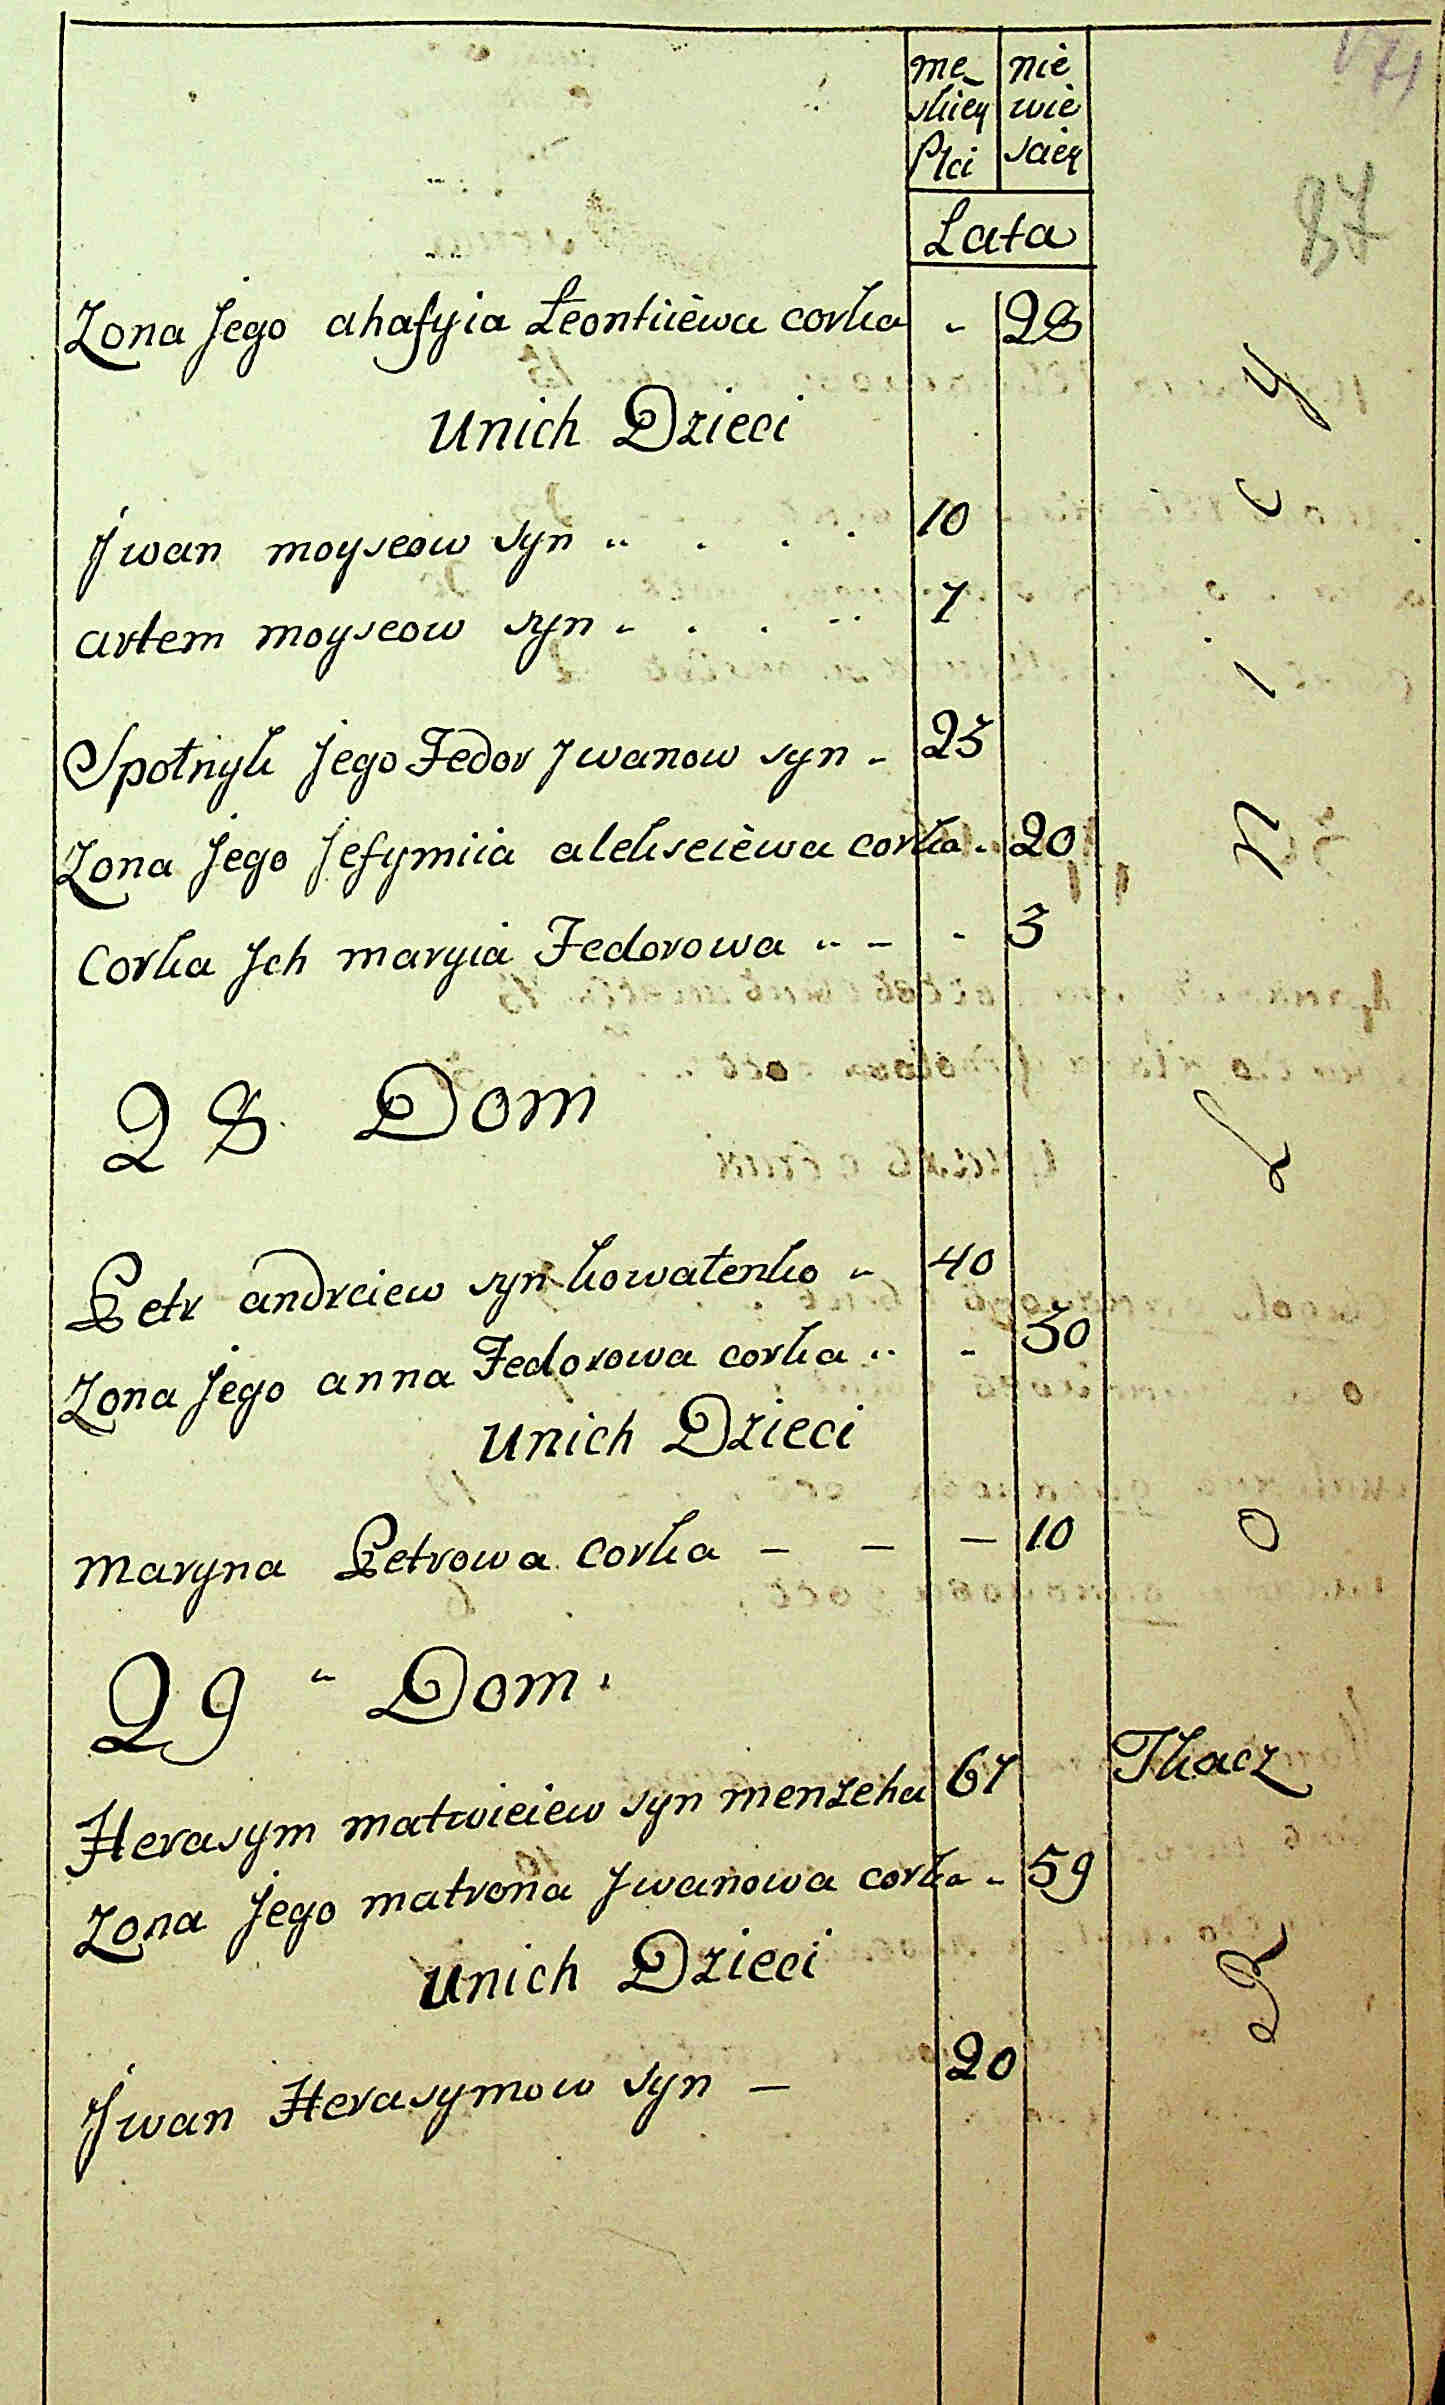 męskiey Płci
niewiesciey
Lata
87
Zona Jego ahafyia Łeontiiewa corka - 28
Unich Dzieci
Jwan moyseow syn 10
artem moyseow syn 7
Społnyk Jego Fedor Jwanow syn - 23
Zona Jego Jefymiia alekseiewa corka - 20
Corka Jch maryia Fedorowa - - 3
28 Dom
Petr andreiew syn kowałenko 40
Zona Jego anna Fedorowa corka - 30
Unich Dzieci
maryna Petrowa corka - - - 10
29 Dom
Herasym matwieiew syn menzeha 67 Tkacz
Zona Jego matrona Jwanowa corka - 59
Unich Dzieci
Jwan Herasymow syn - 20
R o l n i c y